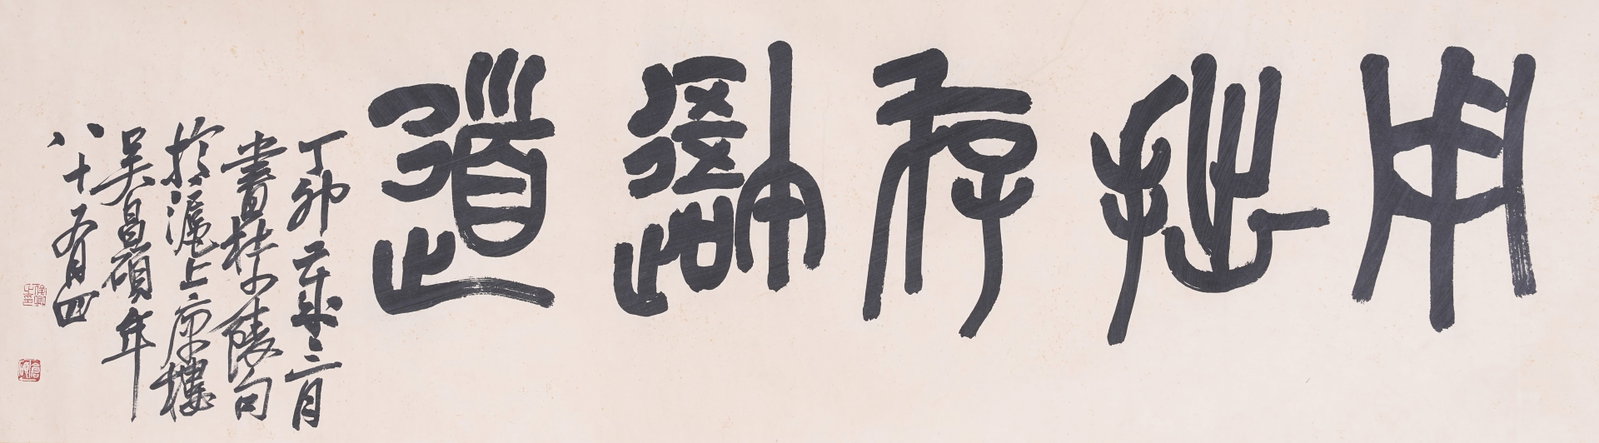 用拙存吾道
丁卯歲三月
書杜少陵句
於滬上庽樓
吳昌碩年
八十有四